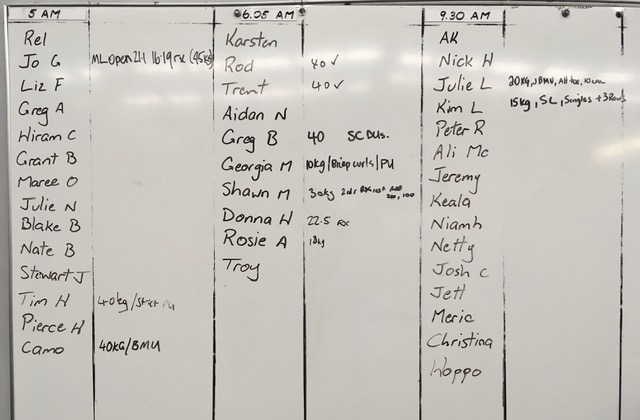 5 AM
Rel
Jo G
Liz F
Greg A
Hiram C
Grant B
Maree O
Julie N
Blake B
Nate B
Stewart J
Tim H 40kg/Strict PU
Pierce H
Camo 40KG/BMU
6.05 AM
Karsten
Rod 40 ✓
Trent 40 ✓
Aidan N
Greg B 40 SC DUs.
Georgia M 10kg/Bicep curls/PU
Shawn M 30kg
Donna H 22.5 RX
Rosie A
Troy
9.30 AM
AK
Nick H
Julie L 20Kg,
Kim L 15kg, SL, Singles + 3
Peter R
Ali Mc
Jeremy
Keala
Niamh
Netty
Josh C
Jett
Meric
Christina
Hoppo